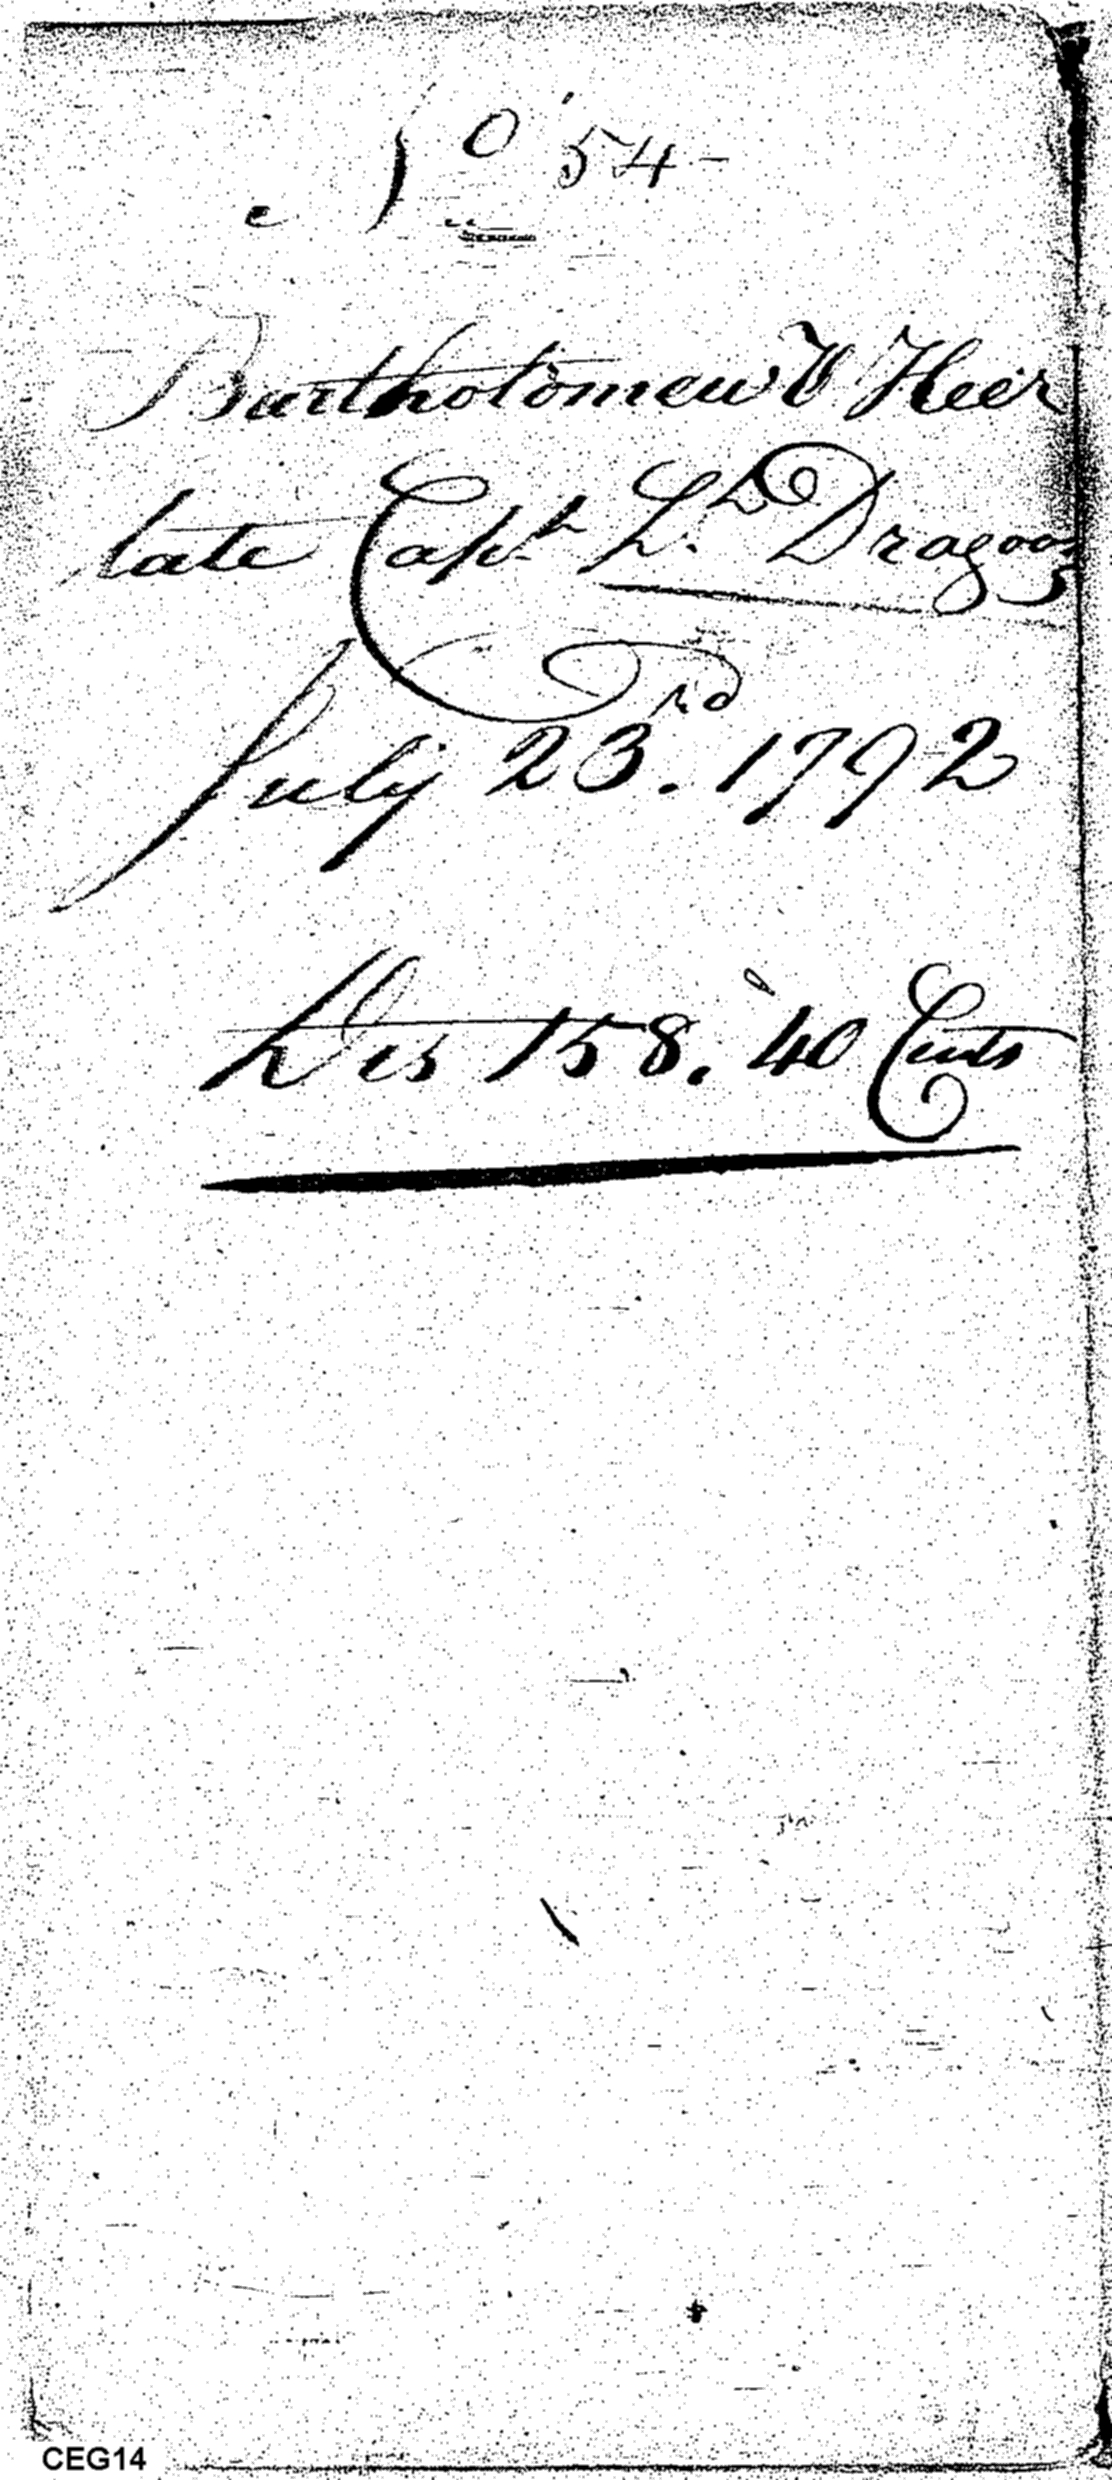 No 54-
Bartholomew V Heer
late Capt Lt Dragoons
July 23rd. 1792
Drs 158. 40 Cents
CEG14